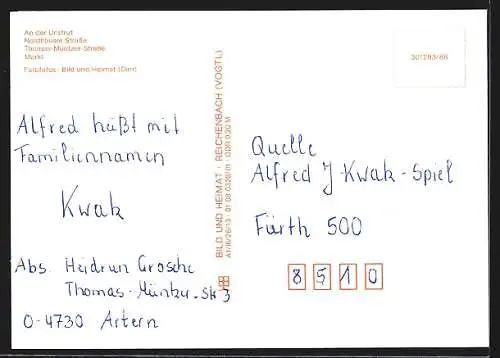 An der Unstrut
Nordhäuser Straße
Thomas-Müntzer-Straße
Markt
Farbfotos: Bild und Heimat (Darr)
301283/86
BILD UND HEIMAT · REICHENBACH (VOGTL)
Alfred hüßt mit
Familiennamen
Kwak
Abs. Heidrun Grosche
Thomas-Müntzer-Str 3
O-4730 Artern
Quelle
Alfred J-Kwak-Spiel
Fürth 500
8510